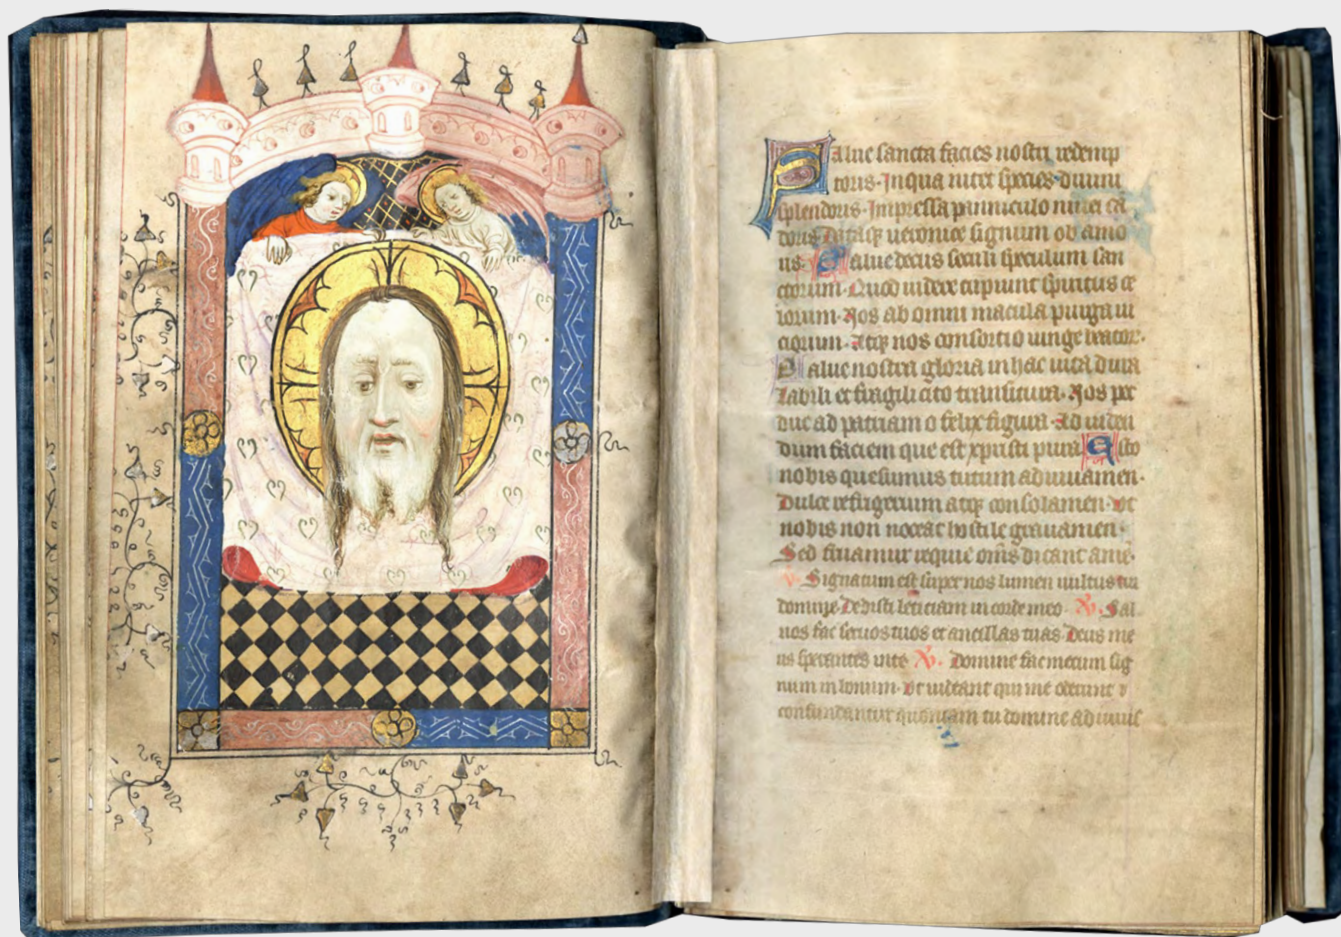 Salue sancta facies nostri redemp
toris· In qua nitet species diuini
splendoris· Impressa panniculo niuei ca
doris Dataqꝫ ueronice signum ob amo
ris· Salue decus seculi speculum san
ctorum· Quod uidere cupiunt spiritus ce
lorum· Nos ab omni macula purga ui
ciorum· Atqꝫ nos consortio iunge beator·
Salue nostra gloria in hac uita dura
labili et fragili cito transitura· Nos per
duc ad patriam o felix figura· Ad uiden
dum faciem que est xpristi pura Esto
nobis quesumus tutum adiuuamen·
Dulce refrigerium atqꝫ consolamen· Vt
nobis non noceat hostile grauamen·
Sed fruamur requie oms̄ dicant amē·
V. Signatum est super nos lumen uultus tui
domine· Dedisti leticiam in corde meo· V. Sal
uos fac seruos tuos et ancillas tuas· Deus me
us sperantes in te V. Domine fac mecum sig
num in bonum· Vt uideant qui me oderunt
confundantur quoniam tu domine adiuuis